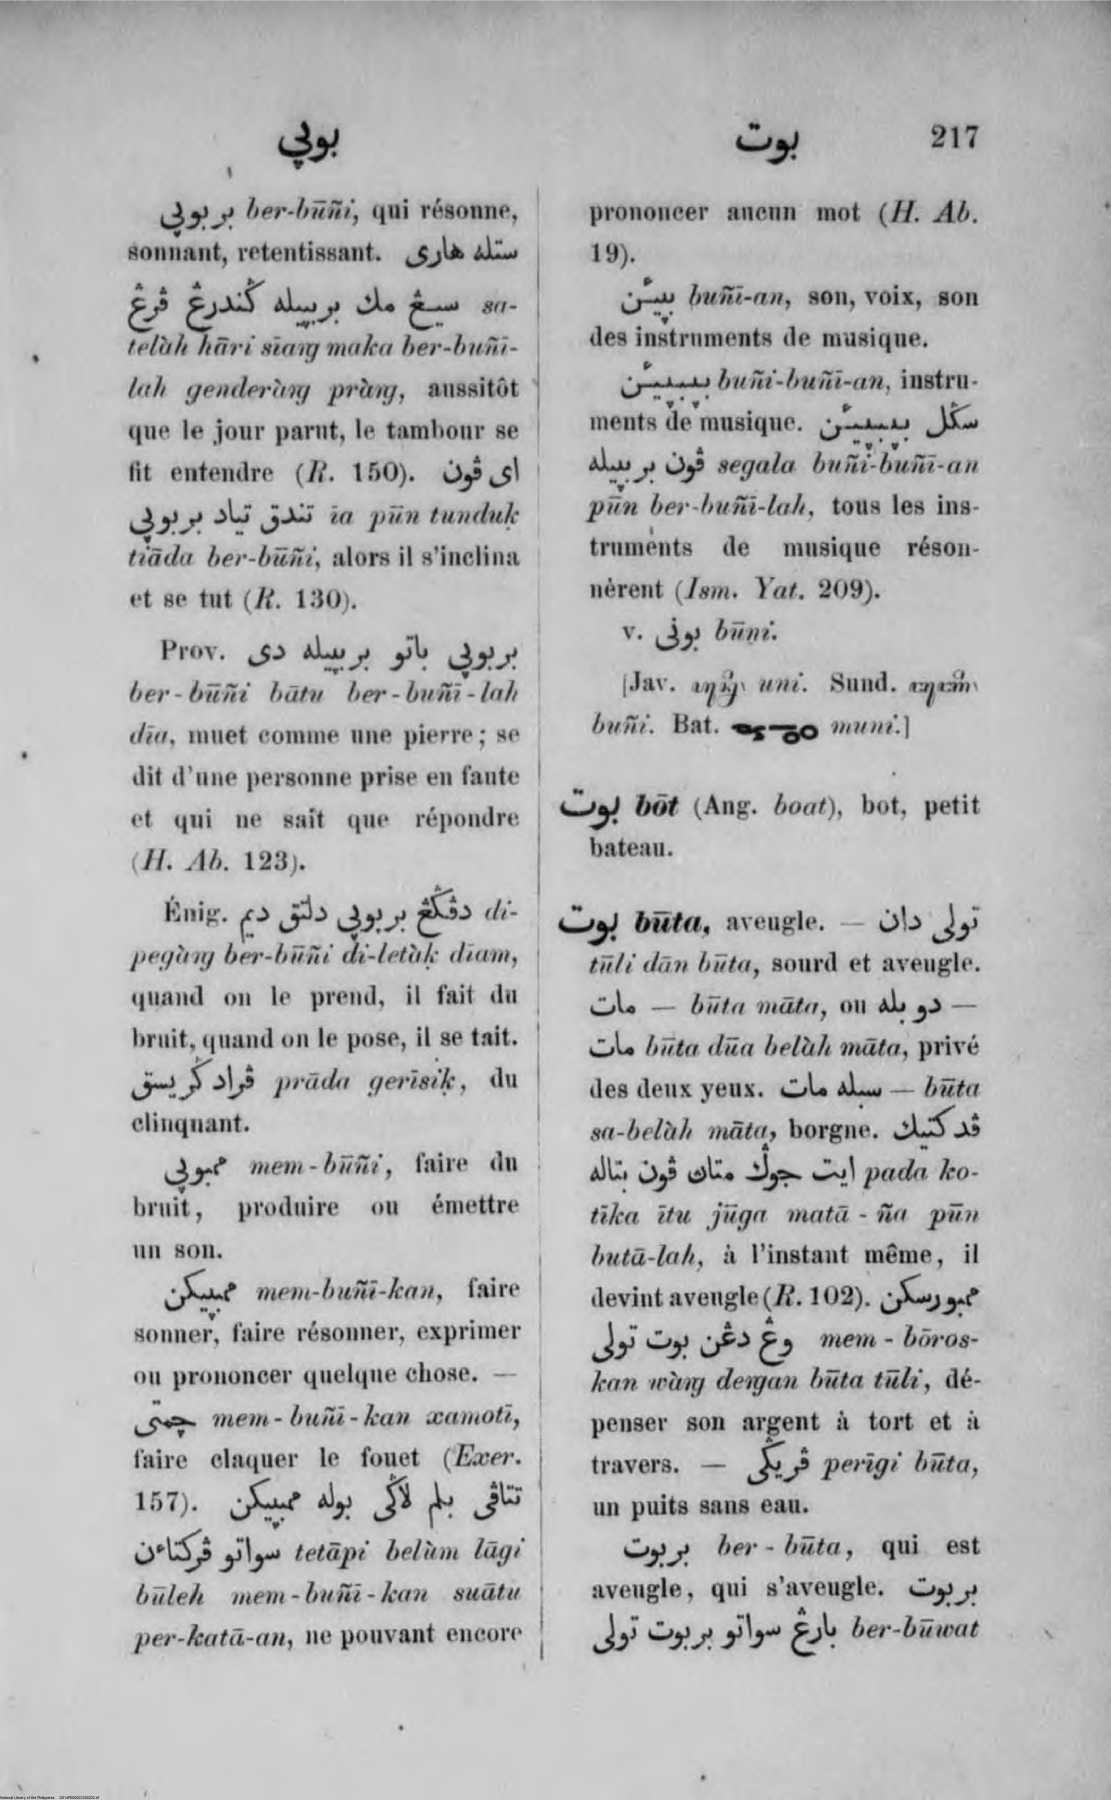 بوڽي
بوت 217
بربوڽي ber-būñi, qui résonne,
sonnant, retentissant. ستله هاري
سيڠ مك بربڽيله ڬندرڠ ڤرڠ sa-
telàh hāri sīaŋ maka ber-buñī-
lah genderàŋ pràŋ, aussitôt
que le jour parut, le tambour se
fit entendre (R. 150). اي ڤون
تندق تياد بربوڽي īa pūn tunduḳ
tiāda ber-būñi, alors il s'inclina
et se tut (R. 130).
Prov. بربوڽي باتو بربڽيله دي
ber-būñi bātu ber-buñī-lah
dīa, muet comme une pierre; se
dit d'une personne prise en faute
et qui ne sait que répondre
(H. Ab. 123).
Énig. دڤڬڠ بربوڽي دلتق ديم di-
pegàŋ ber-būñi di-letàḳ dīam,
quand on le prend, il fait du
bruit, quand on le pose, il se tait.
ڤراد ڬريسق prāda gerīsiḳ, du
clinquant.
ممبوڽي mem-būñi, faire du
bruit, produire ou émettre
un son.
ممبڽيكن mem-buñī-kan, faire
sonner, faire résonner, exprimer
ou prononcer quelque chose. —
چمتي mem-buñī-kan xamotī,
faire claquer le fouet (Exer.
157). تتاڤي بلم لاڬي بوله ممبڽيكن
سواتو ڤركتاءن tetāpi belùm lāgi
būleh mem-buñī-kan suātu
per-katā-an, ne pouvant encore
prononcer aucun mot (H. Ab.
19).
بڽيئن buñī-an, son, voix, son
des instruments de musique.
بڽيبڽيئن buñi-buñī-an, instru-
ments de musique. سڬل بڽيبڽيئن
ڤون بربڽيله segala buñi-buñī-an
pūn ber-buñī-lah, tous les ins-
truments de musique réson-
nèrent (Ism. Yat. 209).
v. بوني būni.
[Jav. uni. Sund.
buñi. Bat. muni.]
بوت bōt (Ang. boat), bot, petit
bateau.
بوت būta, aveugle. — تولي دان
tūli dān būta, sourd et aveugle.
مات — būta māta, ou دو بله —
مات būta dūa belàh māta, privé
des deux yeux. سبله مات — būta
sa-belàh māta, borgne. ڤد كتيك
ايت جوڬ متاڽ ڤون بتاله pada ko-
tīka ītu jūga matā-ña pūn
butā-lah, à l'instant même, il
devint aveugle (R. 102). ممبورسكن
وڠ دڠن بوت تولي mem-bōros-
kan wàŋ deŋan būta tūli, dé-
penser son argent à tort et à
travers. — ڤريڬي perīgi būta,
un puits sans eau.
بربوت ber-būta, qui est
aveugle, qui s'aveugle. بربوت
بارڠ سواتو بربوت تولي ber-būwat